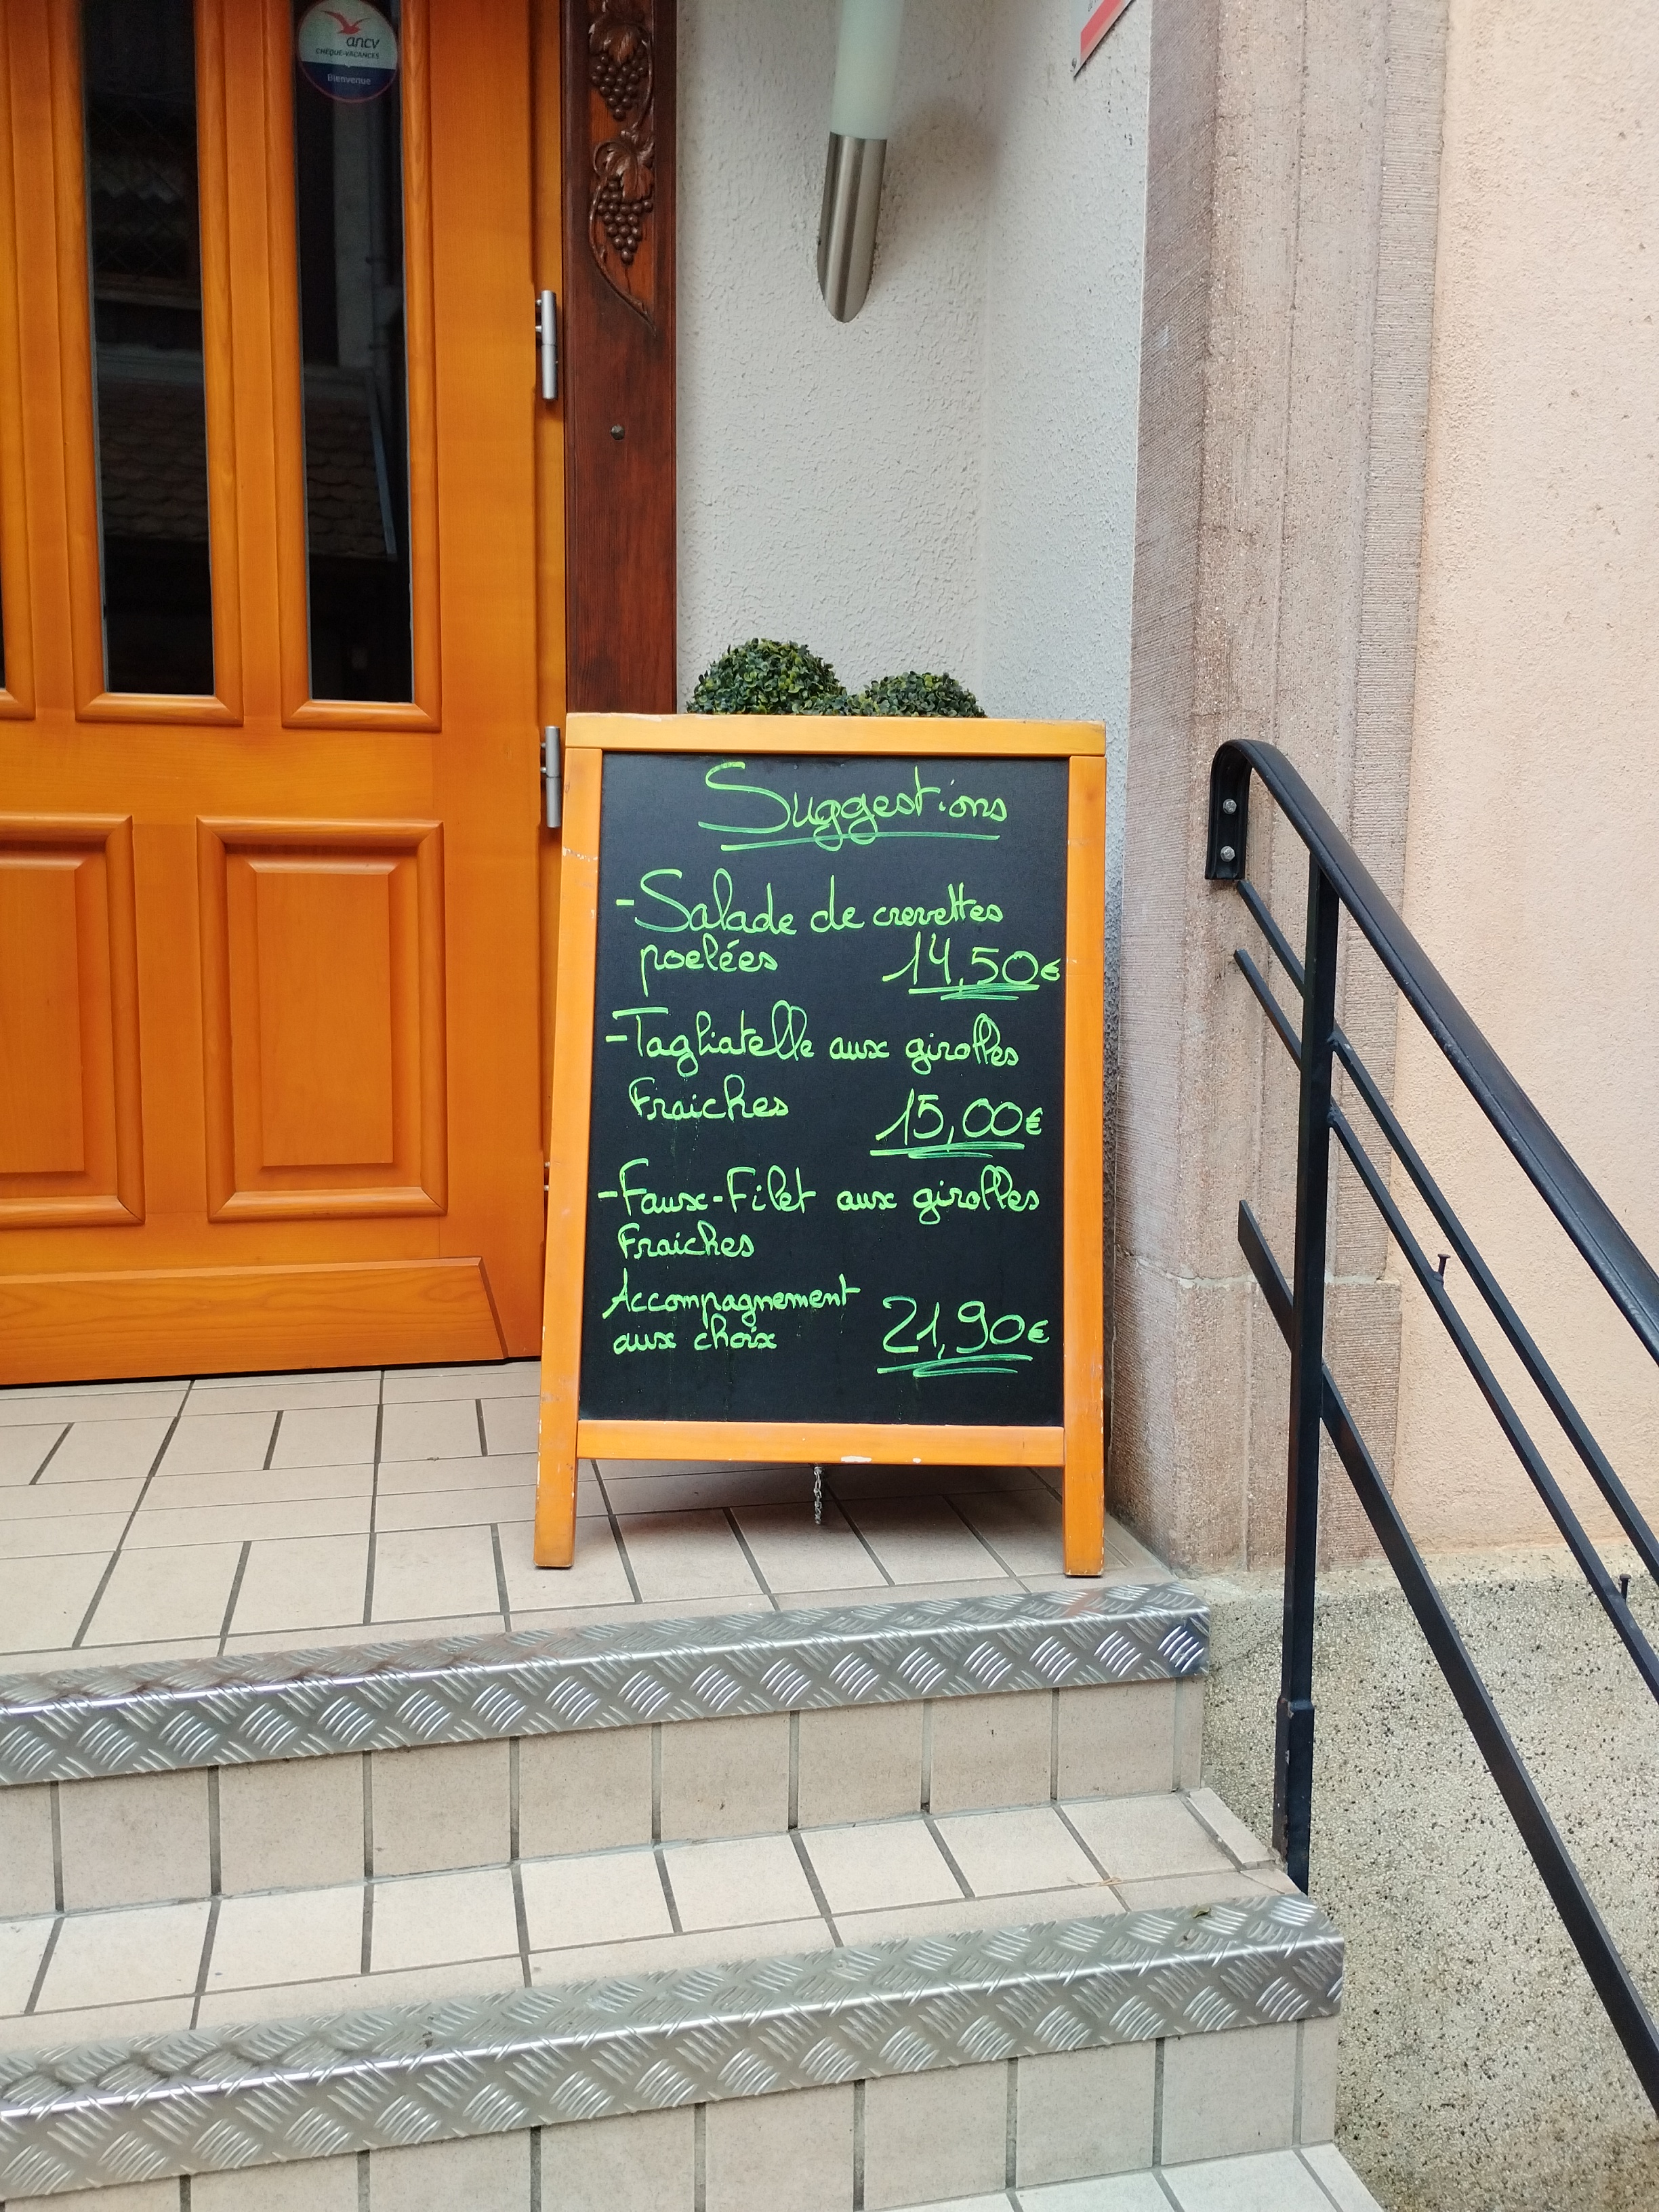 ancv
CHÈQUE-VACANCES
Bienvenue
Suggestions
-Salade de crevettes
poelées 14,50€
-Tagliatelle aux girolles
Fraiches 15,00€
-Faux-Filet aux girolles
Fraiches
Accompagnement
aux choix 21,90€